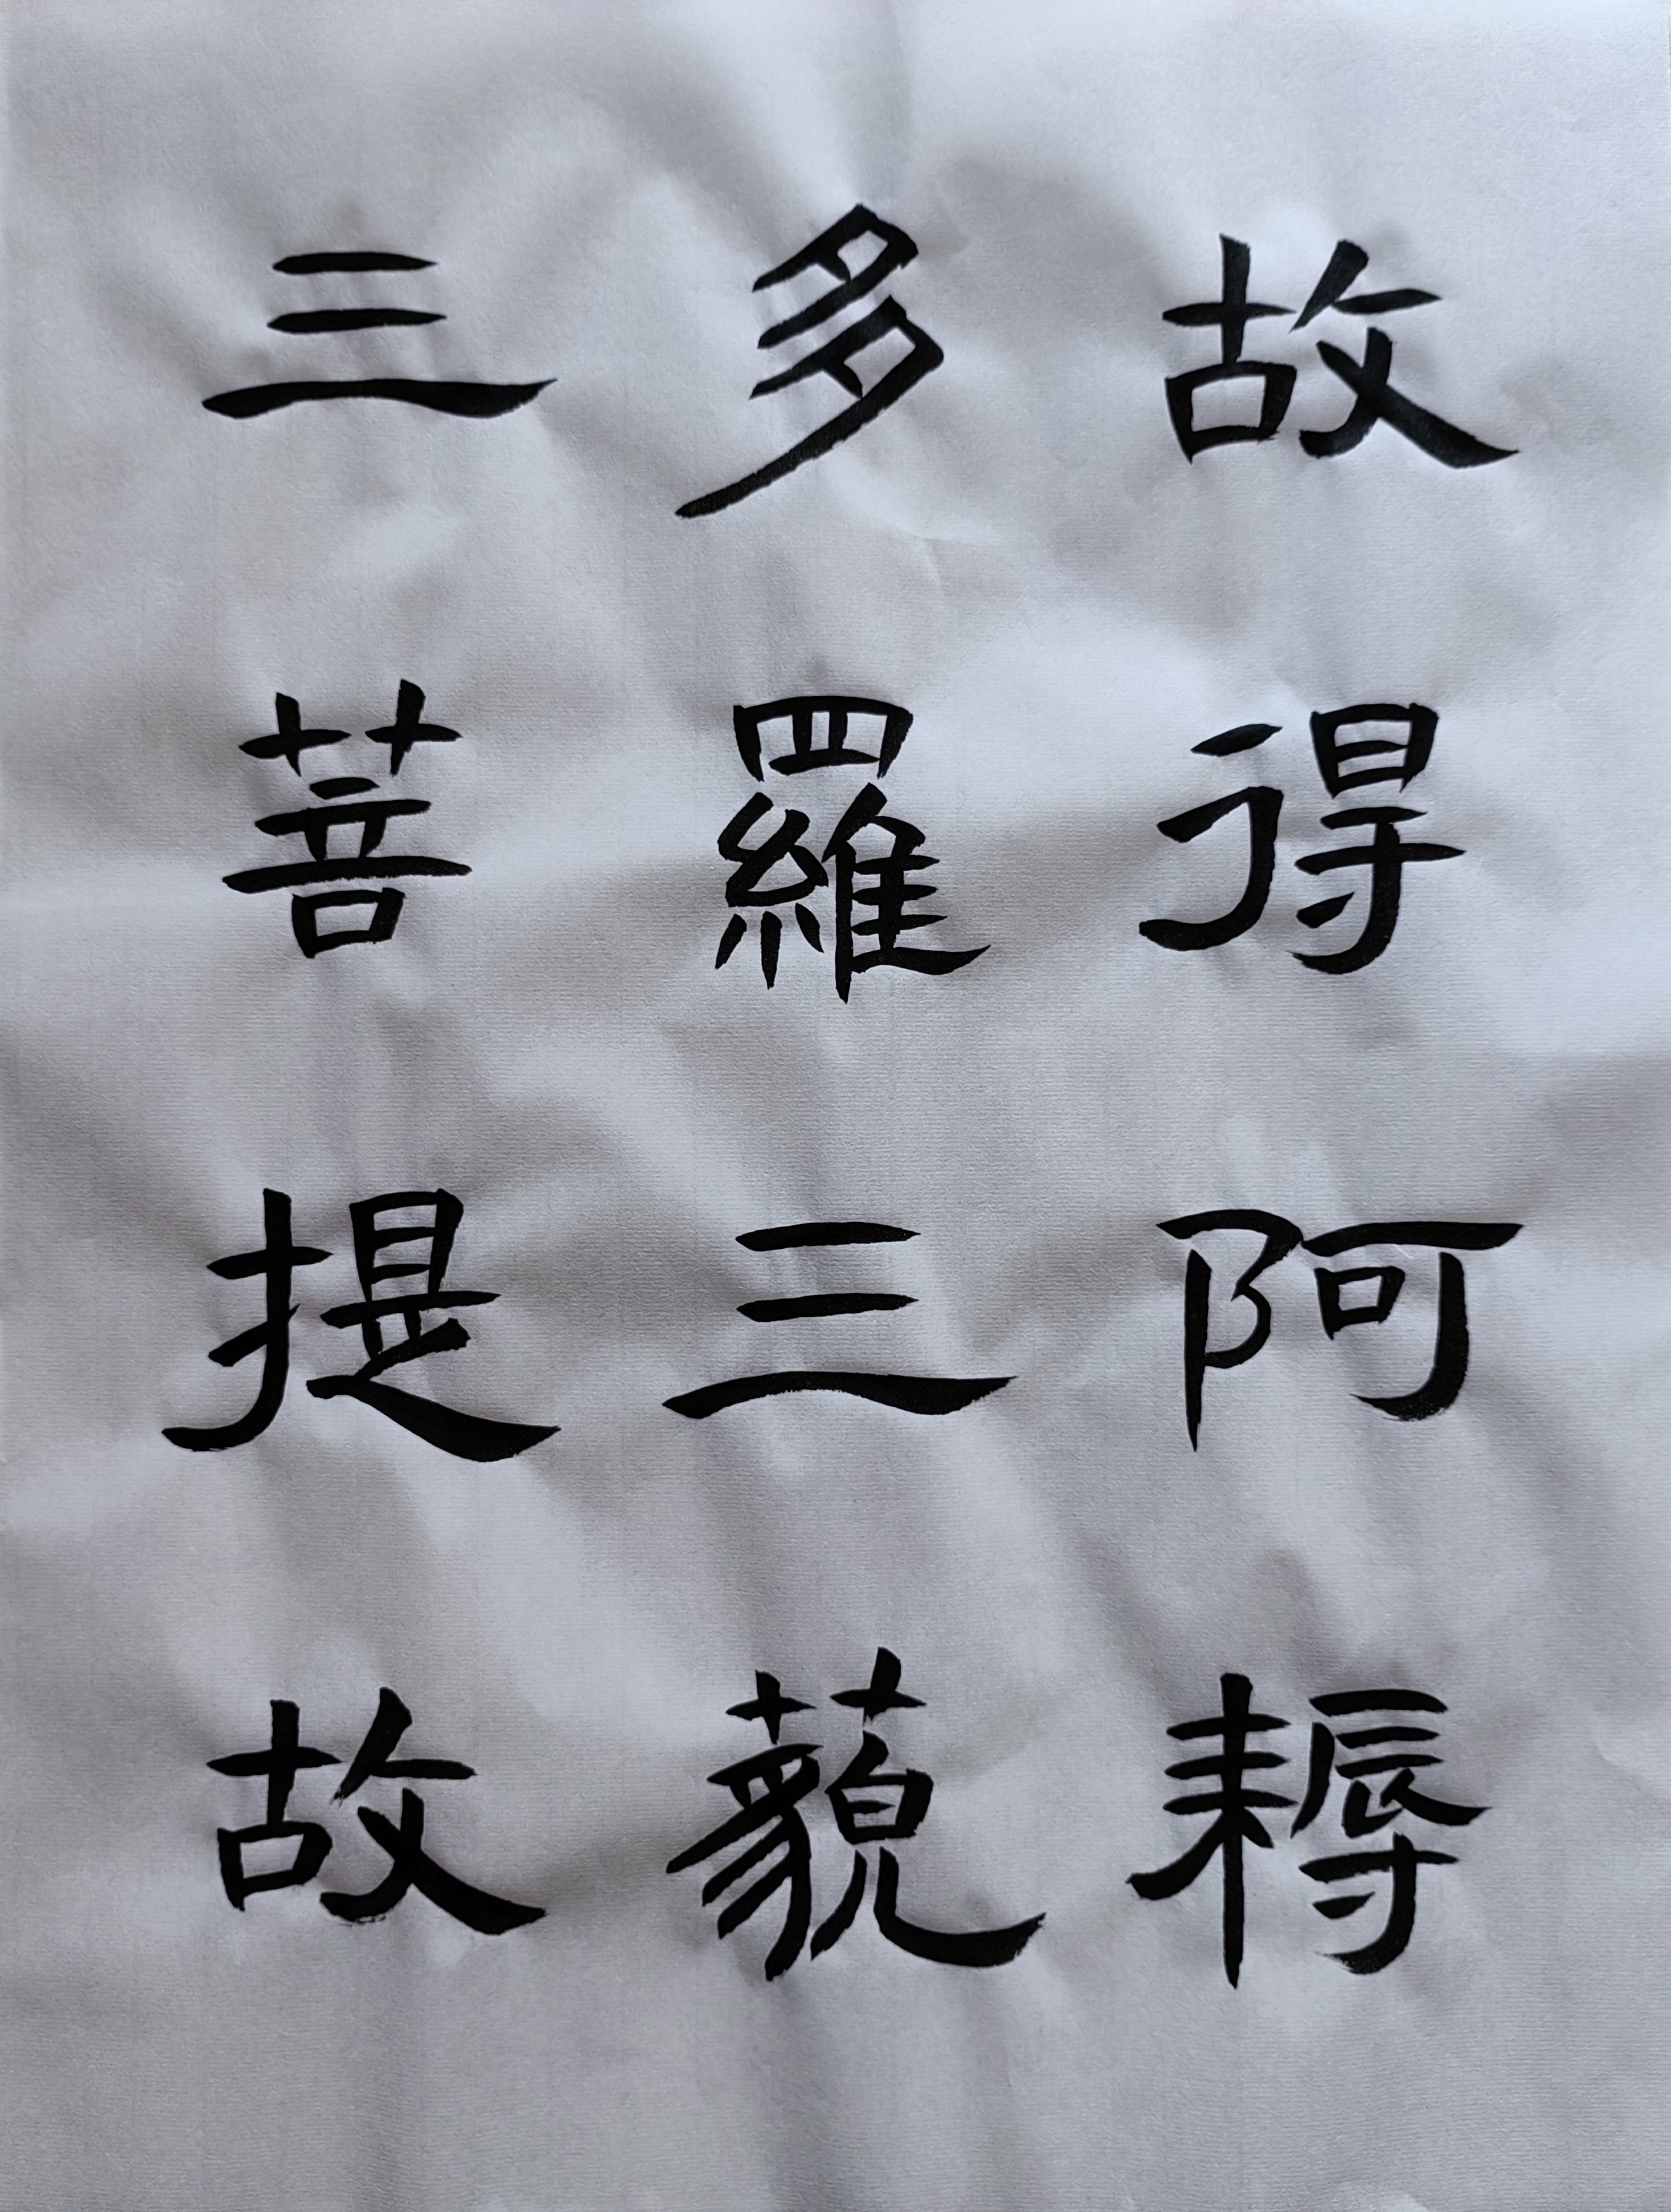 故得阿耨
多羅三藐
三菩提故